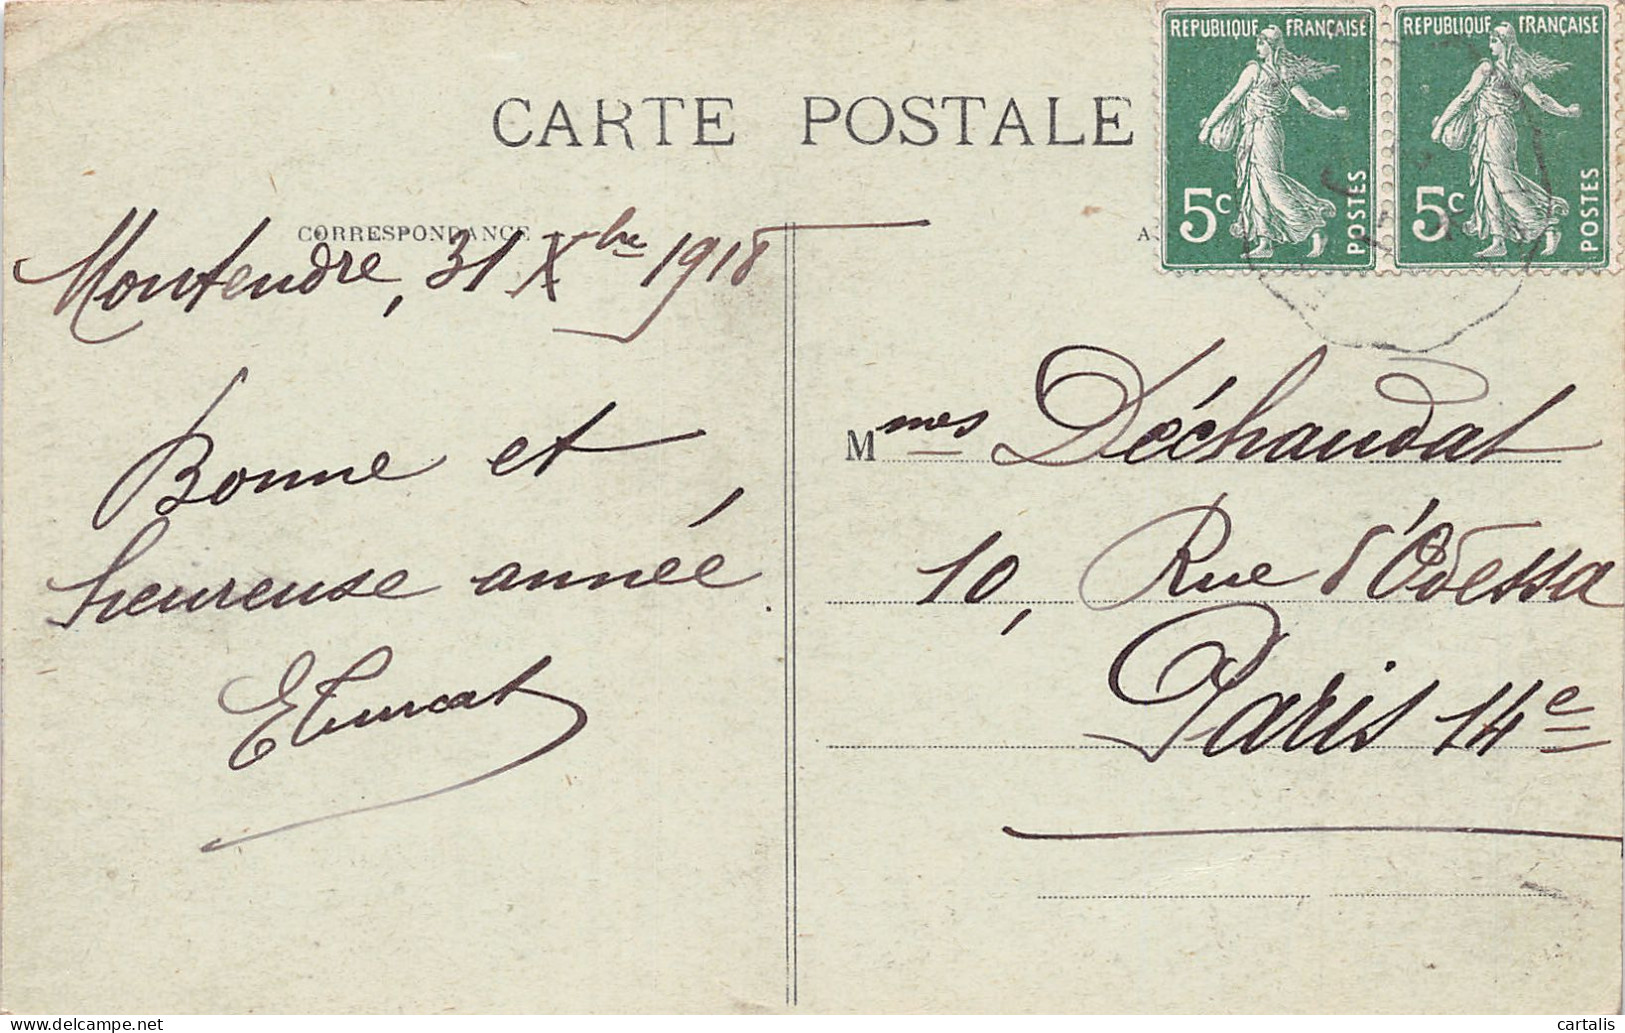 CARTE POSTALE
REPUBLIQUE FRANÇAISE
5c
POSTES
REPUBLIQUE FRANÇAISE
5c
POSTES
CORRESPONDANCE
Montendre, 31 Xbre 1918
Bonne et
heureuse année.
A
Mmes Déchaudat
10, Rue d'Odessa
Paris 14e
cartalis